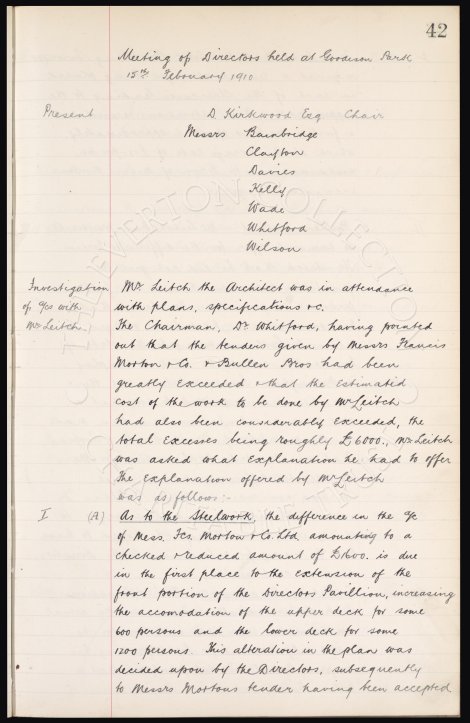 42
Meeting of Directors held at Goodison Park
15th February 1910
Present D Kirkwood Esq Chair
Messrs Bainbridge
Clayton
Davies
Kelly
Wade
Whitford
Wilson
Investigation
of a/cs with
Mr Leitch.
Mr Leitch the Architect was in attendance
with plans, specifications &c.
The Chairman, Dr Whitford, having pointed
out that the tenders given by Messrs Francis
Morton & Co. & Bullen Bros had been
greatly exceeded & that the estimated
cost of the work to be done by Mr Leitch
had also been considerably exceeded, the
total excesses being roughly £6000., Mr Leitch
was asked what explanation he had to offer
The explanation offered by Mr Leitch
was as follows:-
I (A) As to the Steelwork, the difference in the a/c
of Mess. Fcs. Morton & Co. Ltd amounting to a
checked & reduced amount of £1600. is due
in the first place to the extension of the
front portion of the Directors Pavillion, increasing
the accomodation of the upper deck for some
600 persons and the lower deck for some
1200 persons. This alteration in the plan was
decided upon by the Directors, subsequently
to Messrs Mortons tender having been accepted
THE EVERTON COLLECTION